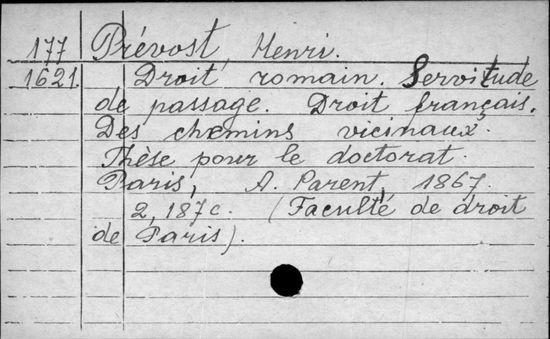 177 Prévost, Henri.
1621 Droit romain. Servitude
de passage. Droit français.
Des chemins vicinaux.
Thèse pour le doctorat.
Paris, A. Parent, 1867.
2, 187 c. (Faculté de droit
de Paris).